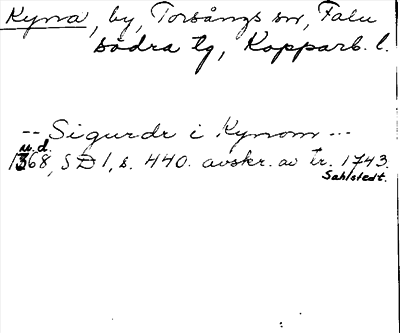 Kyna, by, Torsångs sn, Falu
södra tg, Kopparb. l.
-- Sigurdr i Kynom --
u.d.
1368, SD 1, s. 440. avskr. av tr. 1743.
Sahlstedt.